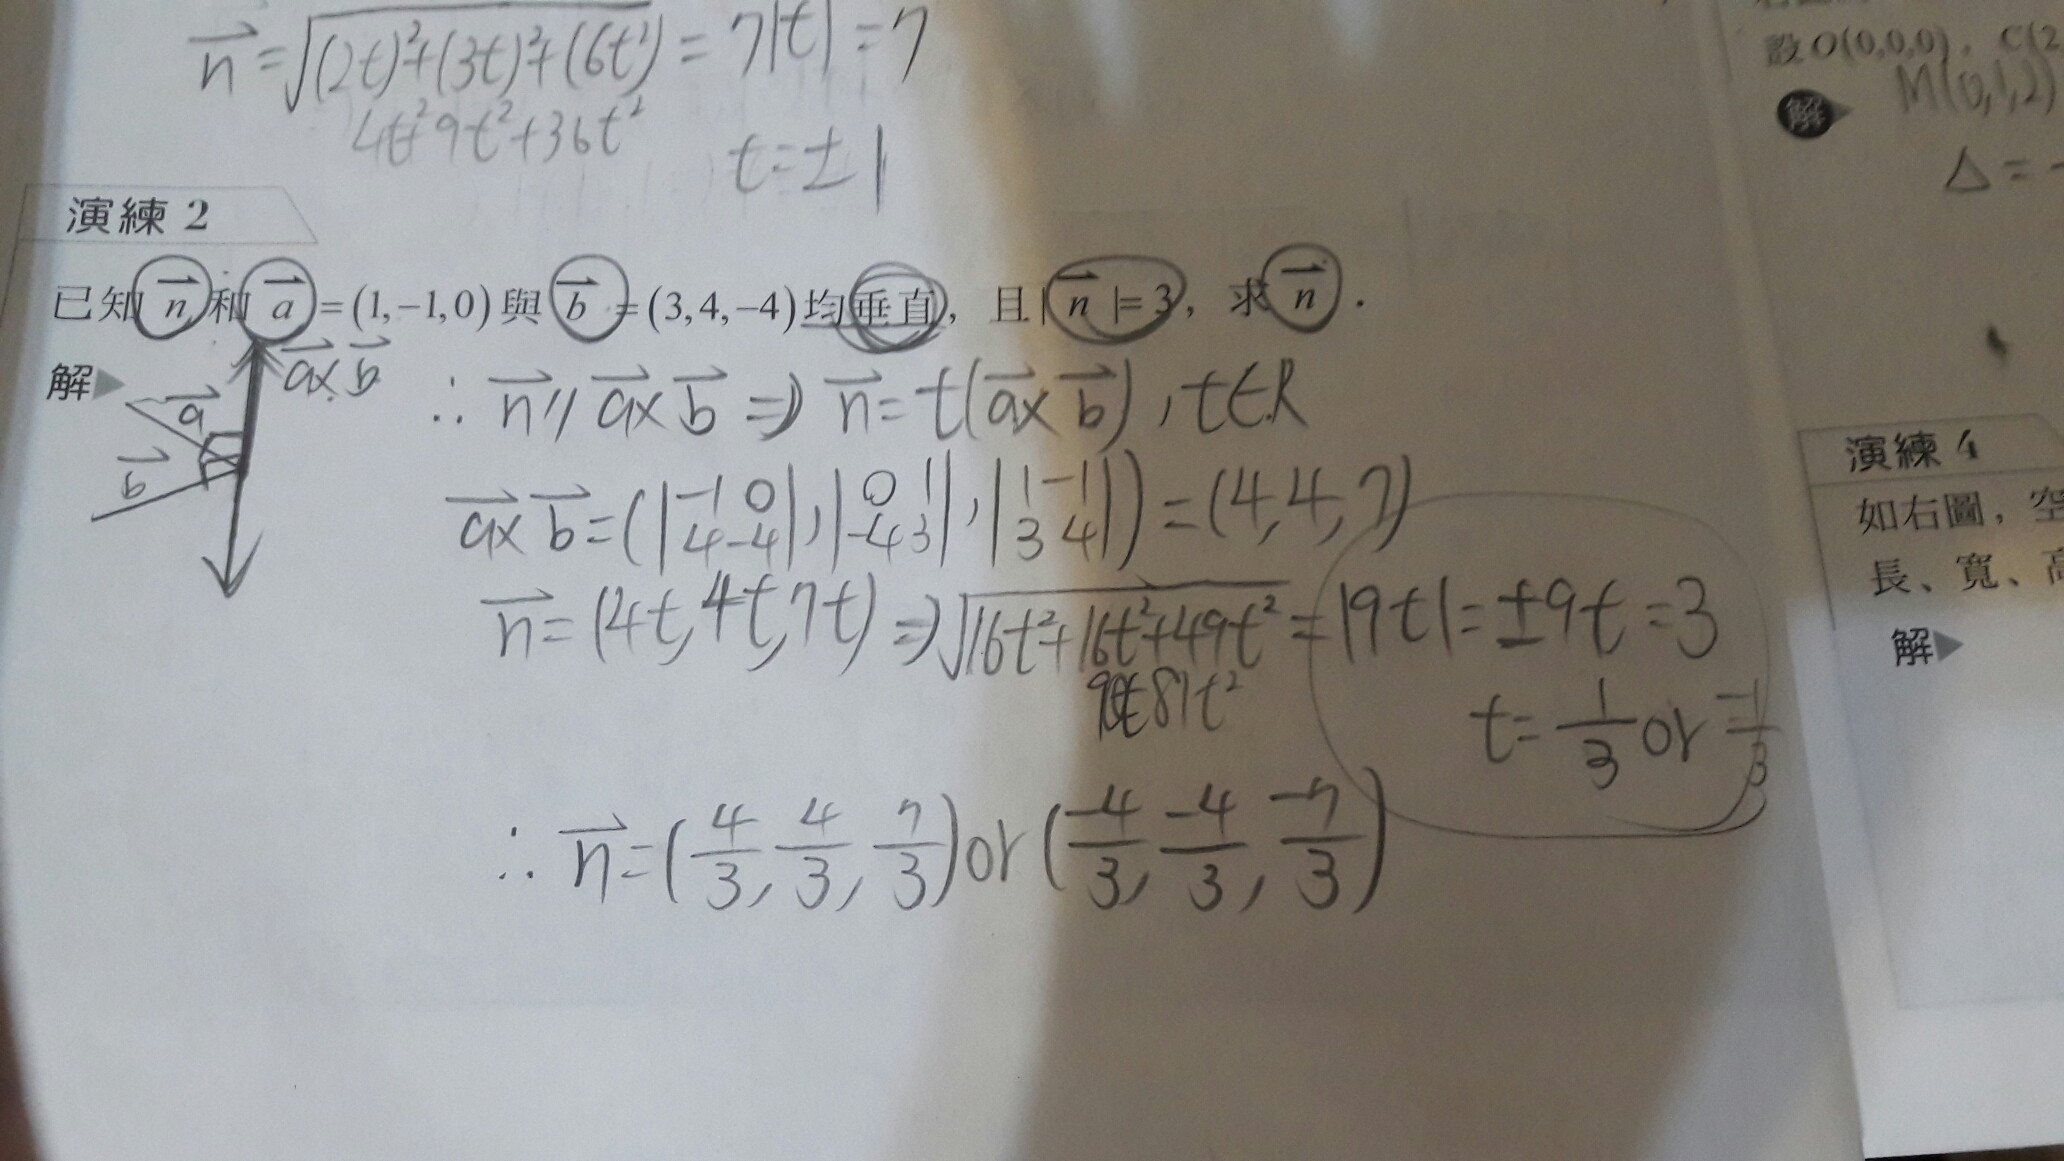 n⃗ = √((2t)²+(3t)²+(6t)²) = 7|t| = 7
4t²+9t²+36t²
t=±1
演練 2
已知 n⃗ 和 a⃗ = (1,−1,0) 與 b⃗ = (3,4,−4) 均垂直，且 | n⃗ |= 3，求 n⃗ .
解▶
a⃗×b⃗
a⃗
b⃗
∴ n⃗ // a⃗×b⃗ ⇒ n⃗ = t(a⃗×b⃗), t∈R
a⃗×b⃗ = (|−1 0; 4 −4|, |0 1; −4 3|, |1 −1; 3 4|) = (4,4,7)
n⃗ = (4t,4t,7t) ⇒ √(16t²+16t²+49t²) = |9t| = ±9t = 3
81t²
t = 1/3 or −1/3
∴ n⃗ = (4/3, 4/3, 7/3) or (−4/3, −4/3, −7/3)
設 O(0,0,0)，C(2
解▶ M(0,1,2)
△ = −
演練 4
如右圖，空
長、寬、高
解▶